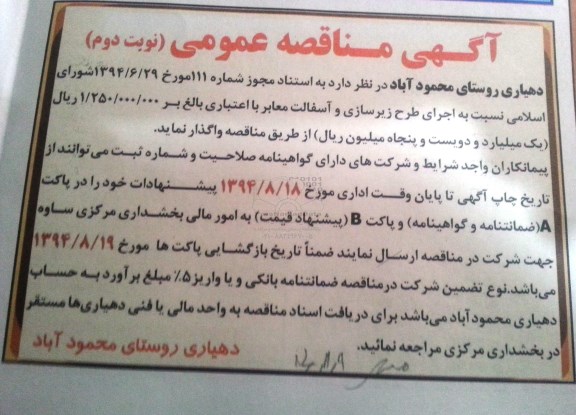 آگهی مناقصه عمومی (نوبت دوم)
دهیاری روستای محمود آباد در نظر دارد به استناد مجوز شماره ۱۱۱مورخ ۱۳۹۴/۶/۲۹شورای
اسلامی نسبت به اجرای طرح زیرسازی و آسفالت معابر با اعتباری بالغ بر ۱/۲۵۰/۰۰۰/۰۰۰ ریال
(یک میلیارد و دویست و پنجاه میلیون ریال) از طریق مناقصه واگذار نماید.
پیمانکاران واجد شرایط و شرکت های دارای گواهینامه صلاحیت و شماره ثبت می‌توانند از
تاریخ چاپ آگهی تا پایان وقت اداری مورخ ۱۳۹۴/۸/۱۸ پیشنهادات خود را در پاکت
A(ضمانتنامه و گواهینامه) و پاکت B (پیشنهاد قیمت) به امور مالی بخشداری مرکزی ساوه
جهت شرکت در مناقصه ارسال نمایند ضمناً تاریخ بازگشایی پاکت ها مورخ ۱۳۹۴/۸/۱۹
می‌باشد.نوع تضمین شرکت درمناقصه ضمانتنامه بانکی و یا واریز ۵٪ مبلغ برآورد به حساب
دهیاری محمود آباد می‌باشد برای دریافت اسناد مناقصه به واحد مالی یا فنی دهیاری‌ها مستقر
در بخشداری مرکزی مراجعه نمائید.
دهیاری روستای محمود آباد